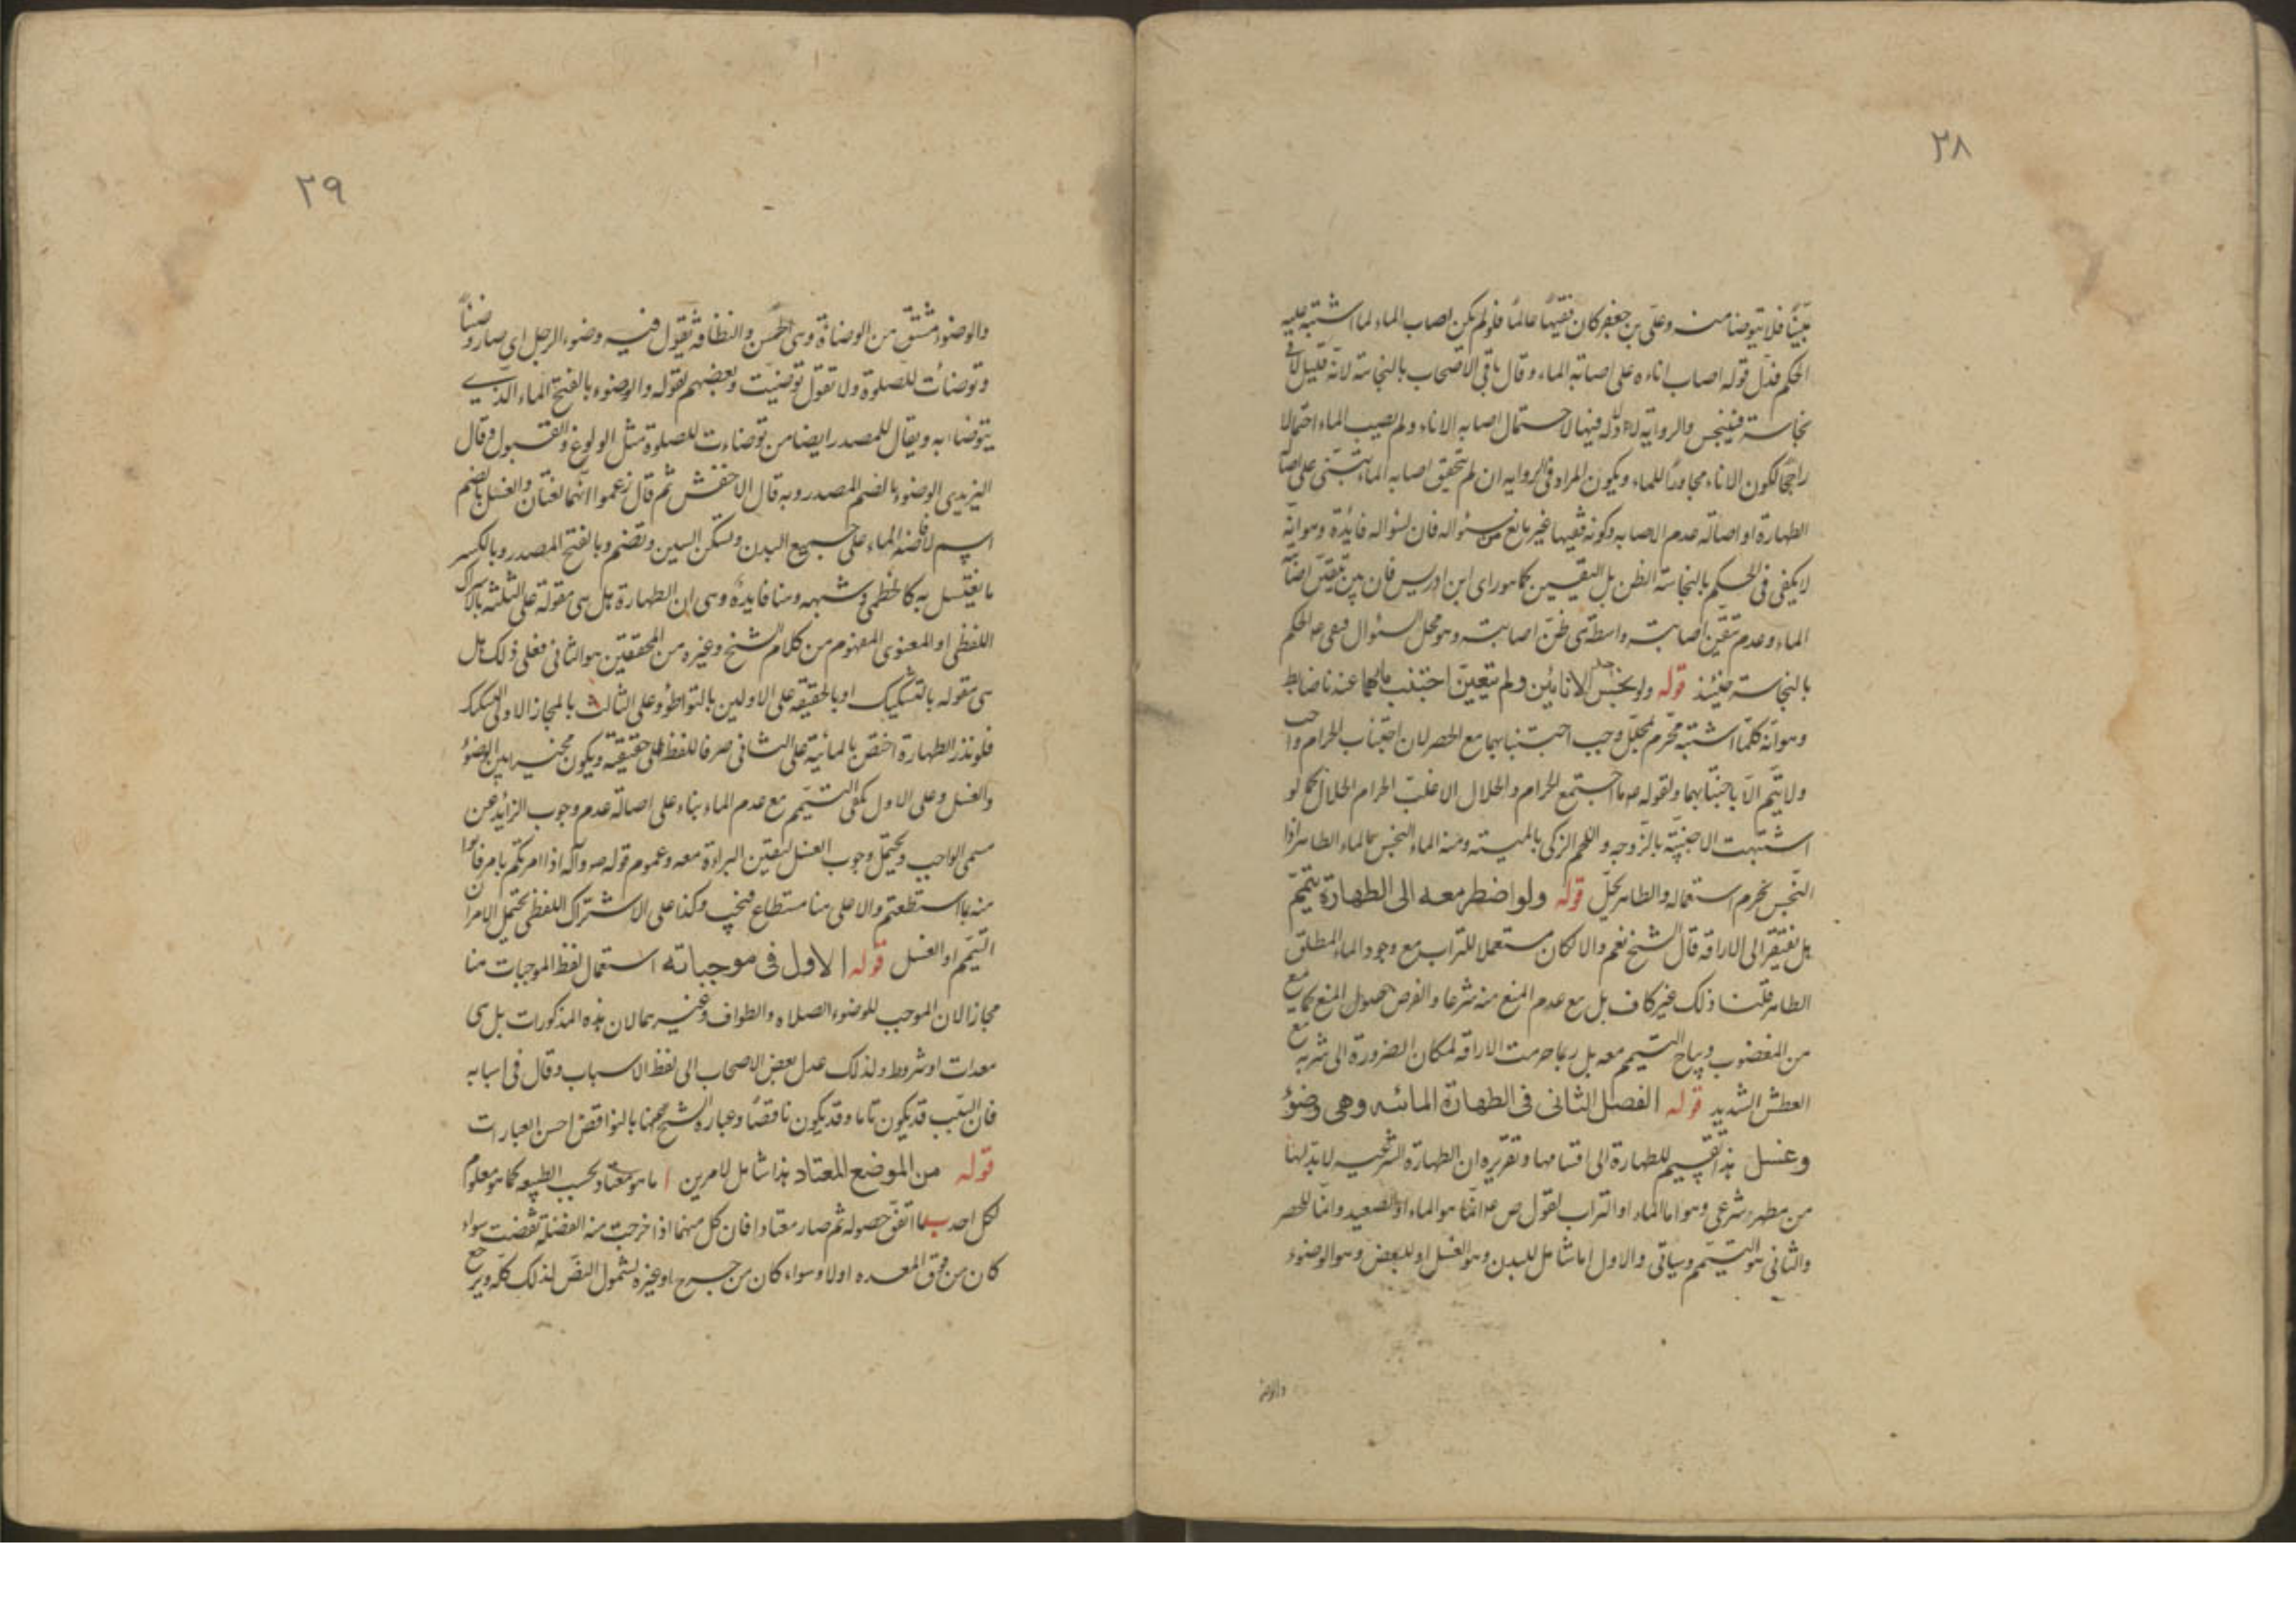 ٢٨
بيّنًا فلا يتوضا منه وعلى بن جعفر كان فقيهًا عالمًا فلو لم يكن اصاب الماء لما اشتبه عليه
الحكم فدل قوله اصاب اناءه على اصابته الماء وقال باقى الاصحاب بالنجاسة لانه قليل لاقى
نجاسة فينجس والرواية لا دلالة فيها لاحتمال اصابه الاناء ولم يصيب الماء احتمالا
راجحًا لكون الاناء مجاورًا للماء ويكون المراد فى الروايه ان لم يتحقق اصابه الماء على
الطهارة او اصالة عدم الاصابه وكونه فقيها غير مانع من سئواله فان لسئواله فايدة وهو انه
لا يكفى فى الحكم بالنجاسة الظن بل اليقين كما هو راى ابن ادريس فان بين تيقن اصابة
الماء وعدم تيقن اصابته واسطة هى ظن اصابته وهو محل السئوال فبقى الحكم
بالنجاسة حينئذ قوله ولو نجس احد الانائين ولم يتعين اجتنب مائهما عندنا ضابط
وهو انه كلما اشتبه محرّم بمحلّل وجب اجتنابهما مع الحصر لان اجتناب الحرام واجب
ولا يتم الا باجتنابهما ولقوله ما اجتمع الحرام والحلال الا غلب الحرام الحلال كما لو
اشتبهت الاجنبية بالزوجه واللحم الزكى بالميته ومنه الماء النجس بالماء الطاهر اذا
النجس يحرم استعماله والطاهر يحلّ قوله ولو اضطر معه الى الطهارة يتيمم
هل يفتقر الى الاراقة قال الشيخ نعم والا لكان مستعملا للتراب مع وجود الماء المطلق
الطاهر قلنا ذلك غير كاف بل مع عدم المنع منه شرعا والفرض حصول المنع كما يمنع
من المغضوب ويباح التيمم معه بل ربما حرمت الاراقة لمكان الضرورة الى شربه مع
العطش الشديد قوله الفصل الثانى فى الطهارة المائيه وهى وضؤ
وغسل هذا تقسيم للطهارة الى اقسامها وتقريره ان الطهارة الشرعيه لابد لها
من مطهر شرعى وهو اما الماء او التراب لقول ص انما هو الماء او الصعيد وانما للحصر
والثانى هو التيمم وسياتى والاول اما شامل للبدن وهو الغسل او للبعض وهو الوضوء
والوضوء
٢٩
والوضوء مشتق من الوضاءة وهى الحسن والنظافة تقول فيه وضوء الرجل اى صار وضيئًا
وتوضأت للصلوة ولا تقول توضيت وبعضهم يقوله والوضوء بالفتح الماء الذى
يتوضاء به ويقال للمصدر ايضا من توضاءت للصلوة مثل الولوغ والقبول وقال
اليزيدى الوضوء بالضم المصدر وبه قال الاخفش ثم قال زعموا انهما لغتان والغسل بالضم
اسم لافاضة الماء على جميع البدن وتسكن السين وتضم وبالفتح المصدر وبالكسر
ما يغتسل به كالخطمى وشبهه وهنا فايدة وهى ان الطهارة هل هى مقولة على الثلثه بالاشتراك
اللفظى او المعنوى المفهوم من كلام الشيخ وغيره من المحققين هو الثانى فعلى ذلك هل
هى مقوله بالتشكيك او بالحقيقة على الاولين بالتواطؤ وعلى الثالث بالمجاز الاولى
فلو نذر الطهارة اختص بالمائية على الثانى صرفا للفظ الى حقيقته ويكون مخير بين الوضؤ
والغسل وعلى الاول يكفى التيمم مع عدم الماء بناء على اصالة عدم وجوب الزايد عن
مسمى الواجب ويحتمل وجوب الغسل لتيقن البراءة معه وعموم قوله ص وآله اذا امرتكم بامر فاتوا
منه بما استطعتم والاعلى هنا مستطاع فيجب وكذا على الاشتراك اللفظى يحتمل الامران
التيمم او الغسل قوله الاول فى موجباته استعمال لفظ الموجبات هنا
مجازا لان الموجب للوضوء الصلاه والطواف وغيرهما لان هذه المذكورات بل هى
معدات او شروط ولذلك عدل بعض الاصحاب الى لفظ الاسباب وقال فى اسبابه
فان السبب قد يكون تاما وقد يكون ناقصًا وعبارة الشيخ هيهنا بالنواقض احسن العبارات
قوله من الموضع المعتاد هذا شامل لامرين ا ما هو معتاد بحسب الطبيعه كما هو معلوم
لكل احد ب ما اتفق حصوله ثم صار معتادا فان كل منهما اذا خرجت منه الفضلة نقضت سواء
كان من فوق المعده اولا وسواء كان من جرح او غيره لشمول النص لذلك كله ويرجع